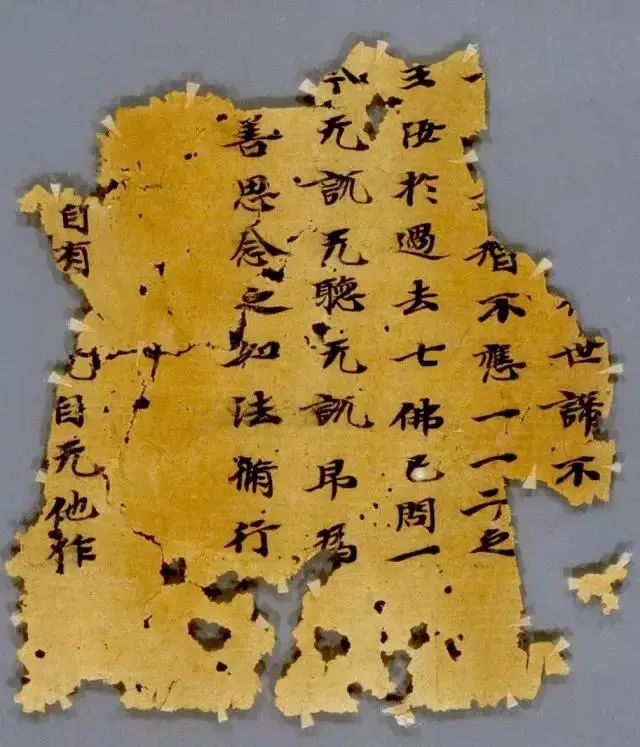 世諦不
智不應一一二之
王汝於過去七佛已問一
无說无聽无說即為
善思念之如法脩行
自有 自无他作